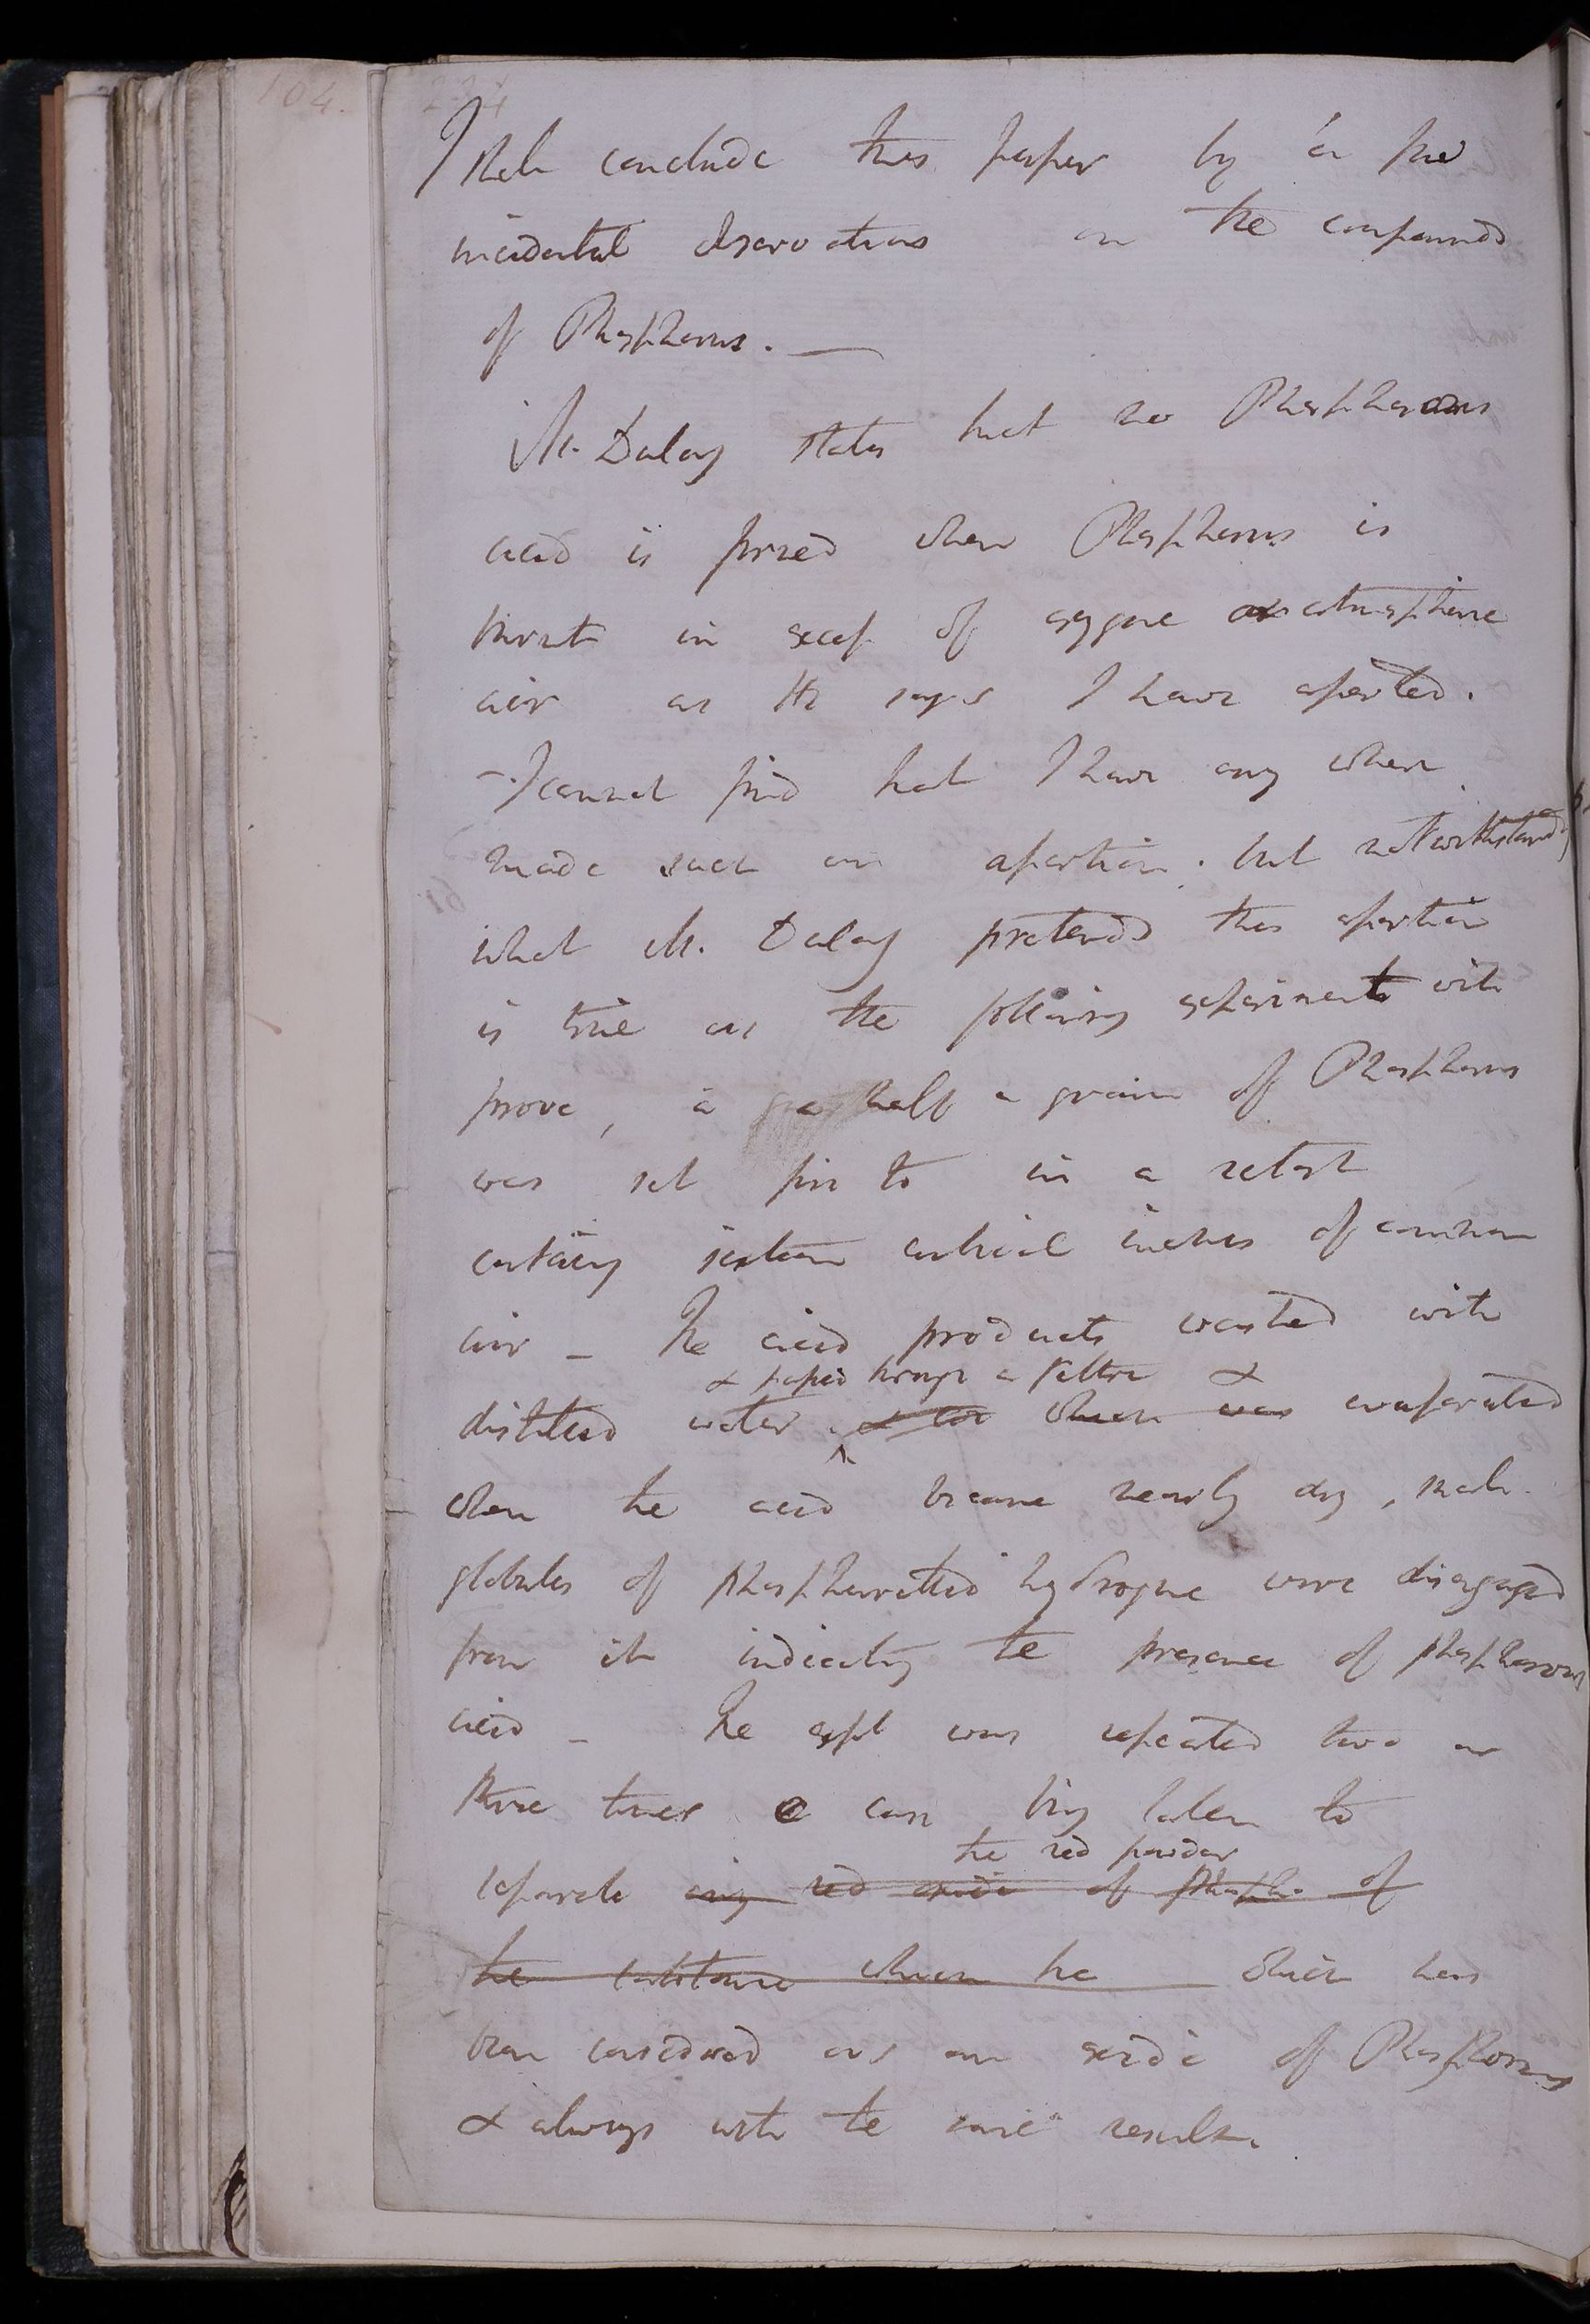 104.
I shall conclude this paper by a few
incidental observations on the compounds
of Phosphorus. —
M. Dulong states that no Phosphorous
acid is formed when Phosphorus is
burnt in excess of oxygene or atmospheric
air as He says I have asserted.
- I cannot find that I have any where
made such an assertion. but notwithstandg
what M. Dulong pretends this assertion
is true as the following experiments will
prove, a half a grain of Phosphorus
was set fire to in a retort
containg sixteen cubical inches of common
air _ The acid products washed with
& passed through a filtre &
distilled water & which was evaporated
when the acid became nearly dry, small
globules of phosphuretted hydrogene were disengaged
from it indicating the presence of phosphorous
acid _ The expt was repeated two or
three times & care being taken to
the red powder
separate any red oxide of phospho of
the substance which he which has
been considered as an oxide of Phosphorus
& always with the same results.